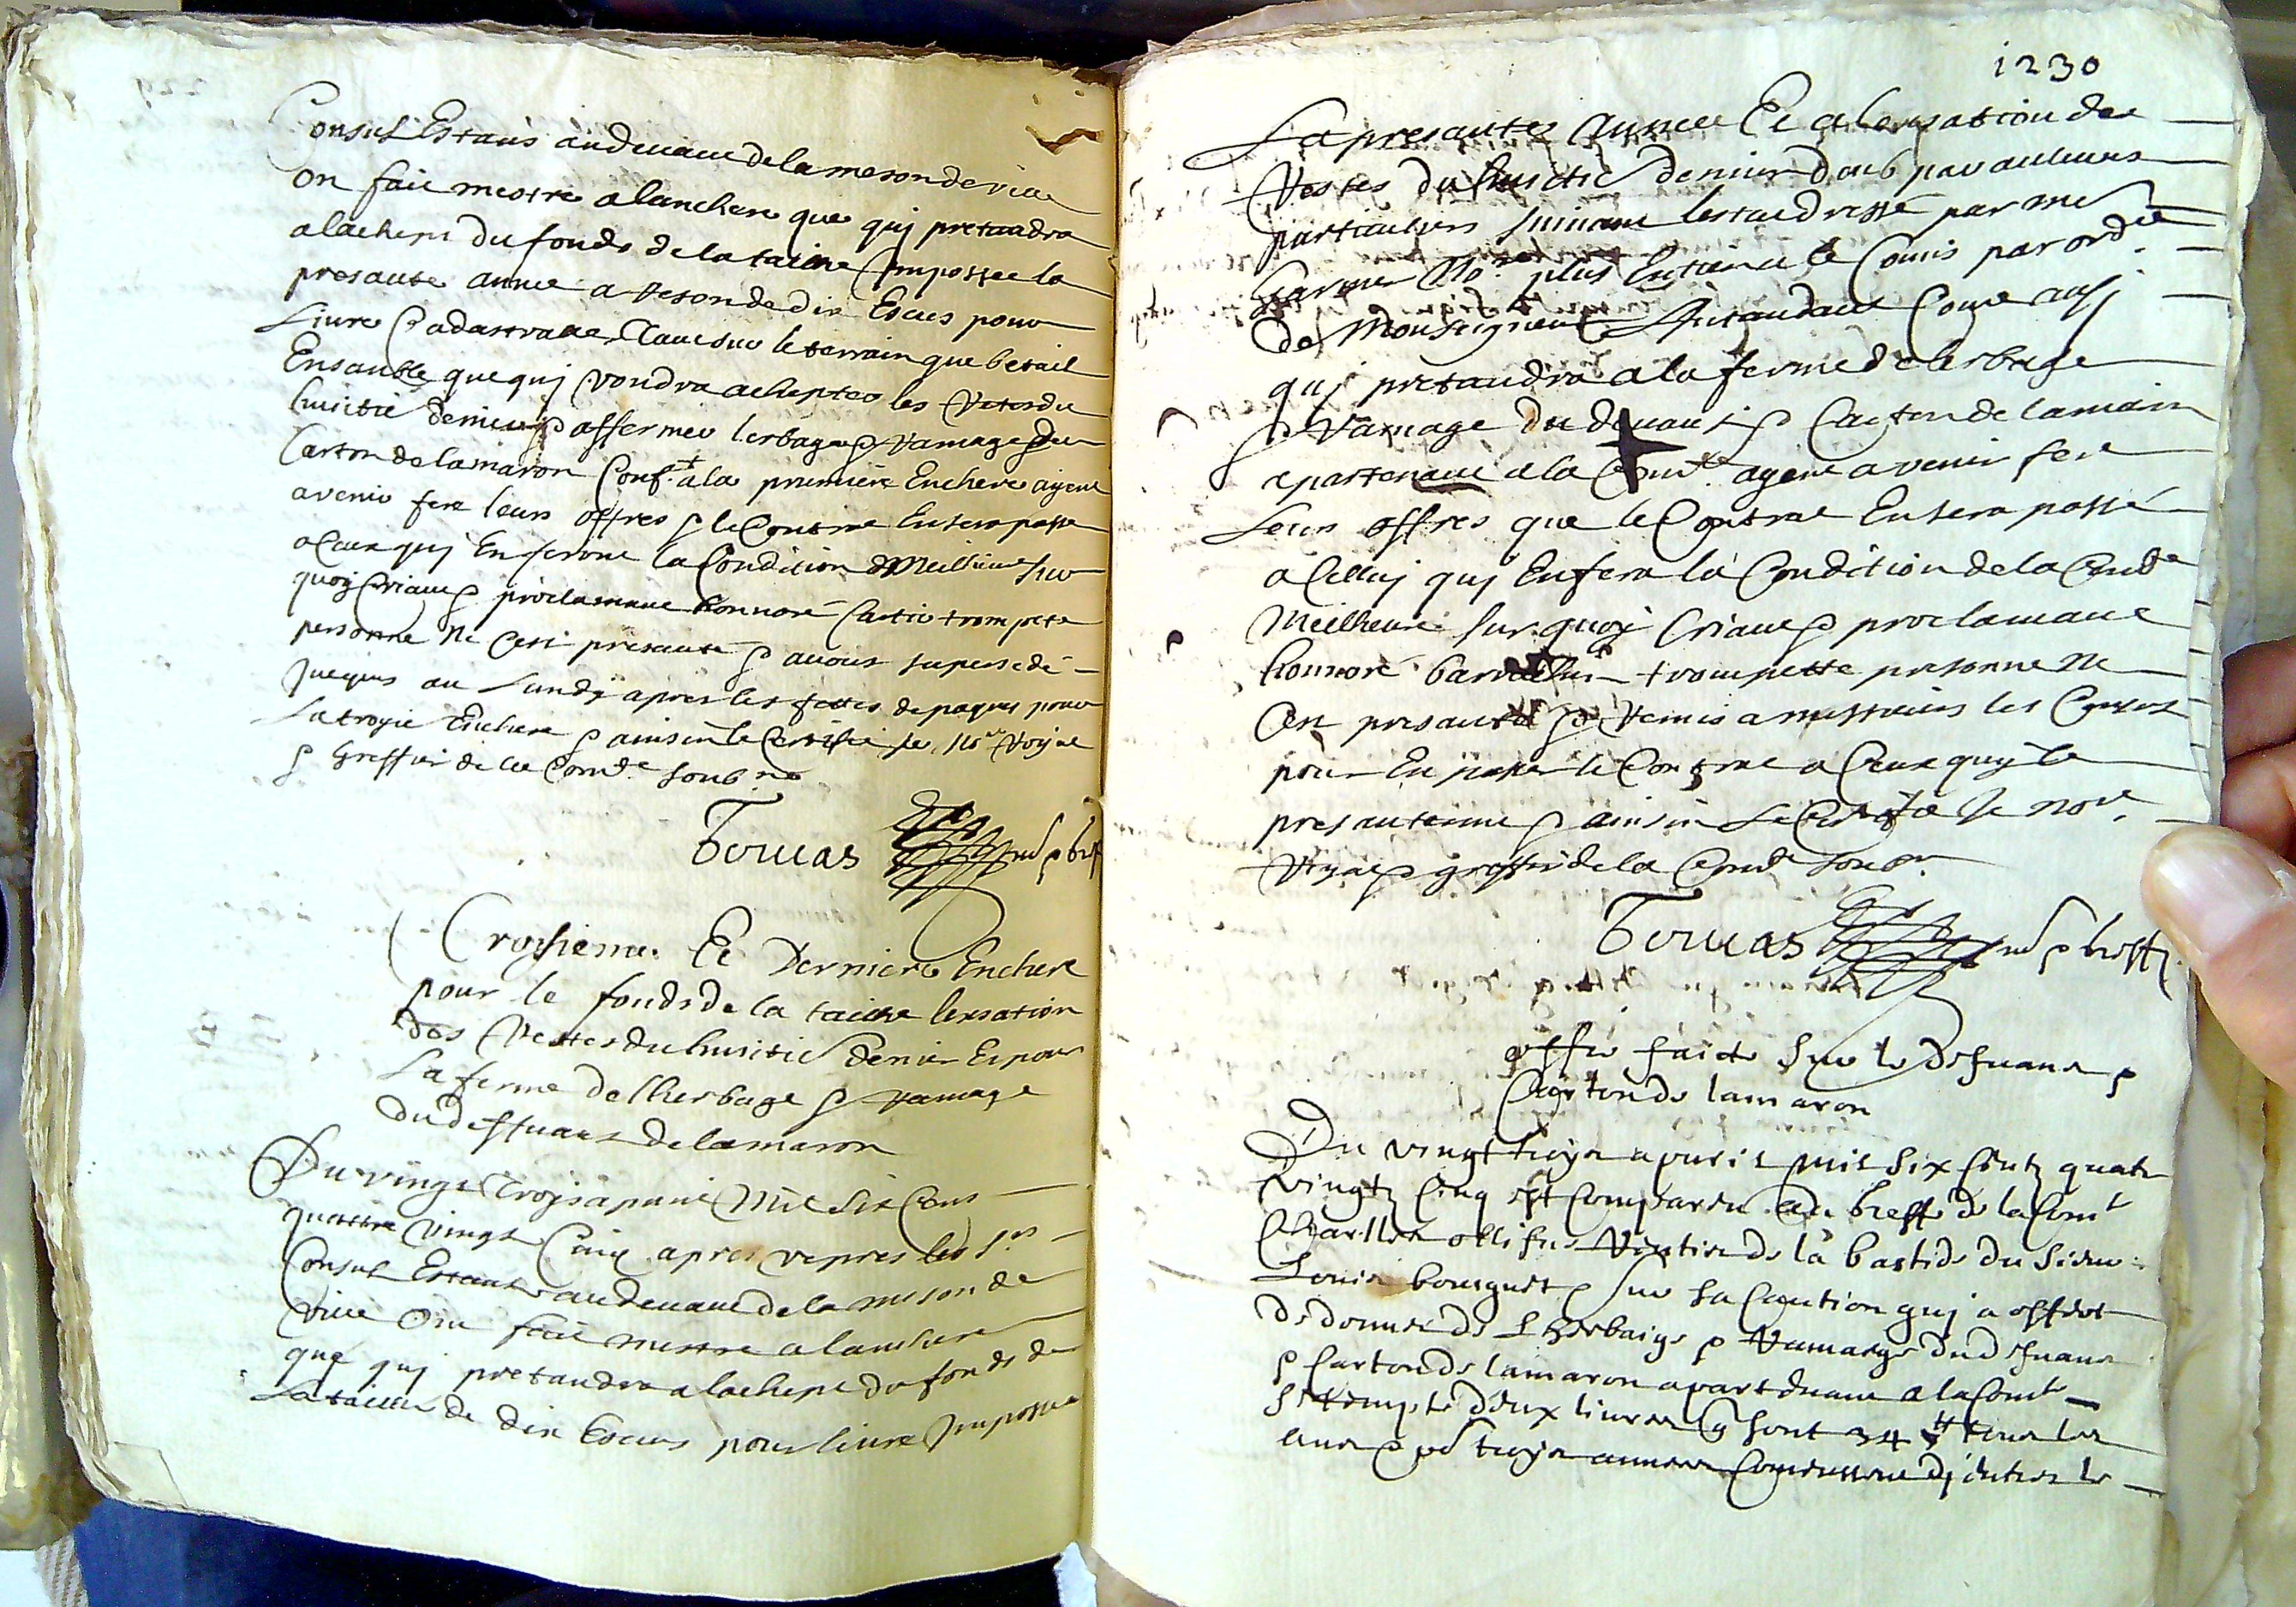 Consuls Estans audevant de la meson de ville
on faict mestre alanchere que quj pretandra
alachept du fonds de la taille Impossee la
presante annee a reson de dix Escus pour
Livre Cadastralle tant sur le terrain que betail
Ensanble que quj voudra achepter les restes du
huictie denier & affermer lerbage & ramage du
Carton de lamaron Conf.t a la premiere Enchere ayent
a venir fere leurs offres & le Contrat En sera passe
a Ceux quj En feront la Condition Meilheure sur
quoy Criant & proclamant honnoré trompete
personne ne Cest presanté & avons supersedé
Jusques au Lundy apres les festes de paques pour
La troysie Enchere & ainsin le Certifie Je No.re Royal
& Greffier de la Com.te soubne
Toruas
Troysieme Et Derniere Enchere
pour le fonds de la taille lexsation
des Restes du huictie denier Et pour
La ferme de lherbage & ramage
du deffuans de lamaron
Du vingt troys apvril Mil Six Cens
quattre vingts Cinq apres vepres les S.rs
Consuls Estant audevant de la meson de
ville Ont faict mestre alanchere
que quj pretandra alachept du fonds de
La taille de dix Escus pour livre Impossee
1230
La presante annee Et a lexsation des
Restes du huictie denier deub par aulcuns
particuliers suivant lestat dressé par me
No.re plus le Comis par ordre
de Monseigneur Lintandant Come aussj
quj pretandra a la ferme de lerbage
& ramage du devans & Carton de lamaron
apartenant a la Com.te ayent a venir fere
Leurs offres que le Contrat En sera passé
a Celluj quj En fera la Condition de la Com.te
Meilheure sur quoy Criant & proclamant
honnoré trompette personne ne
Cest presanté & Remis a messieurs les Consuls
pour En passer le Contrat a Ceux quj se
presanteront & ainsin Le Certifie Je No.re
Royal & greffier de la Com.te soub.ne
Toruas
offre faicte sur le defuans &
Carton de lamaron
Du vingt troys apvril mil six Centz quatre
vingtz Cinq est Comparu au greffe de la Com.te
Charlles ollifus Rentier de la bastide du sieur
Louis bousquet & sur sa Caution quj a offert
de donner de Lherbaige & Ramaige dud defuans
& Carton de lamaron apartenant a la Com.te
deux livres sont 34 tt tous les
ans & troys annees Comensant dj entrer le